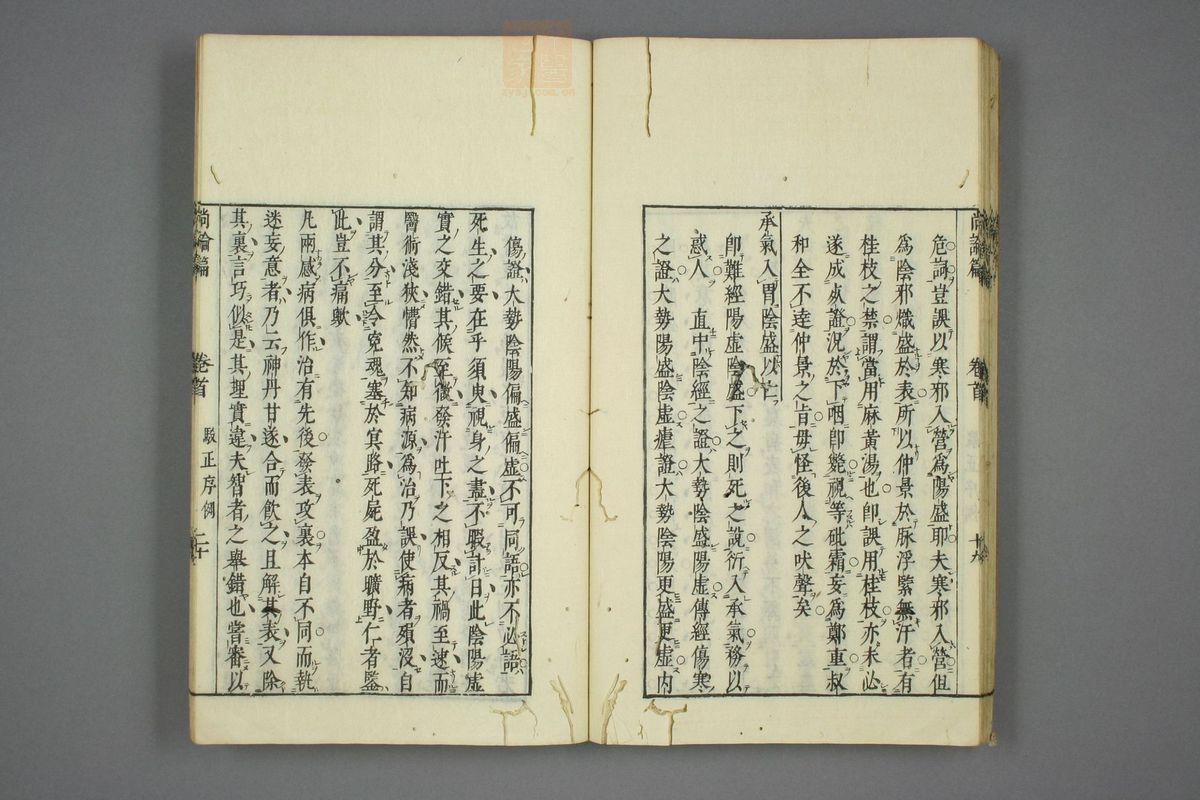 尚論篇 卷首 十九
危詞豈誤以寒邪入營為陽盛耶夫寒邪入營但
為陰邪熾盛於表所以仲景於脉浮緊無汗者有
桂枝之禁謂當用麻黃湯也卽誤用桂枝亦未必
遂成危證況於下咽卽斃視等砒霜妄為鄭重叔
和全不達仲景之旨毋怪後人之吠聲矣
承氣入胃陰盛以亡
卽難經陽虛陰盛下之則死之說衍入承氣移以
惑人 直中陰經之證大勢陰盛陽虛傳經傷寒
之證大勢陽盛陰虛瘧證大勢陰陽更盛更虛內
傷證大勢陰陽偏盛偏虛不可同語亦不必語
死生之要在乎須臾視身之盡不暇計日此陰陽虛
實之交錯其候至微發汗吐下之相反其禍至速而
醫術淺狹懵然不知病源為治乃誤使病者殞沒自
謂其分至令寃魂塞於冥路死屍盈於曠野仁者鑒
此豈不痛歟
凡兩感病俱作治有先後發表攻裏本自不同而執
迷妄意者乃云神丹甘遂合而飮之且解其表又除
其裏言巧似是其理實違夫智者之舉錯也嘗審以
尚論篇 卷首 駁正序例 二十